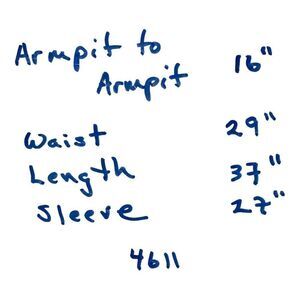 Armpit to
Armpit 16"
Waist 29"
Length 37"
Sleeve 27"
4611